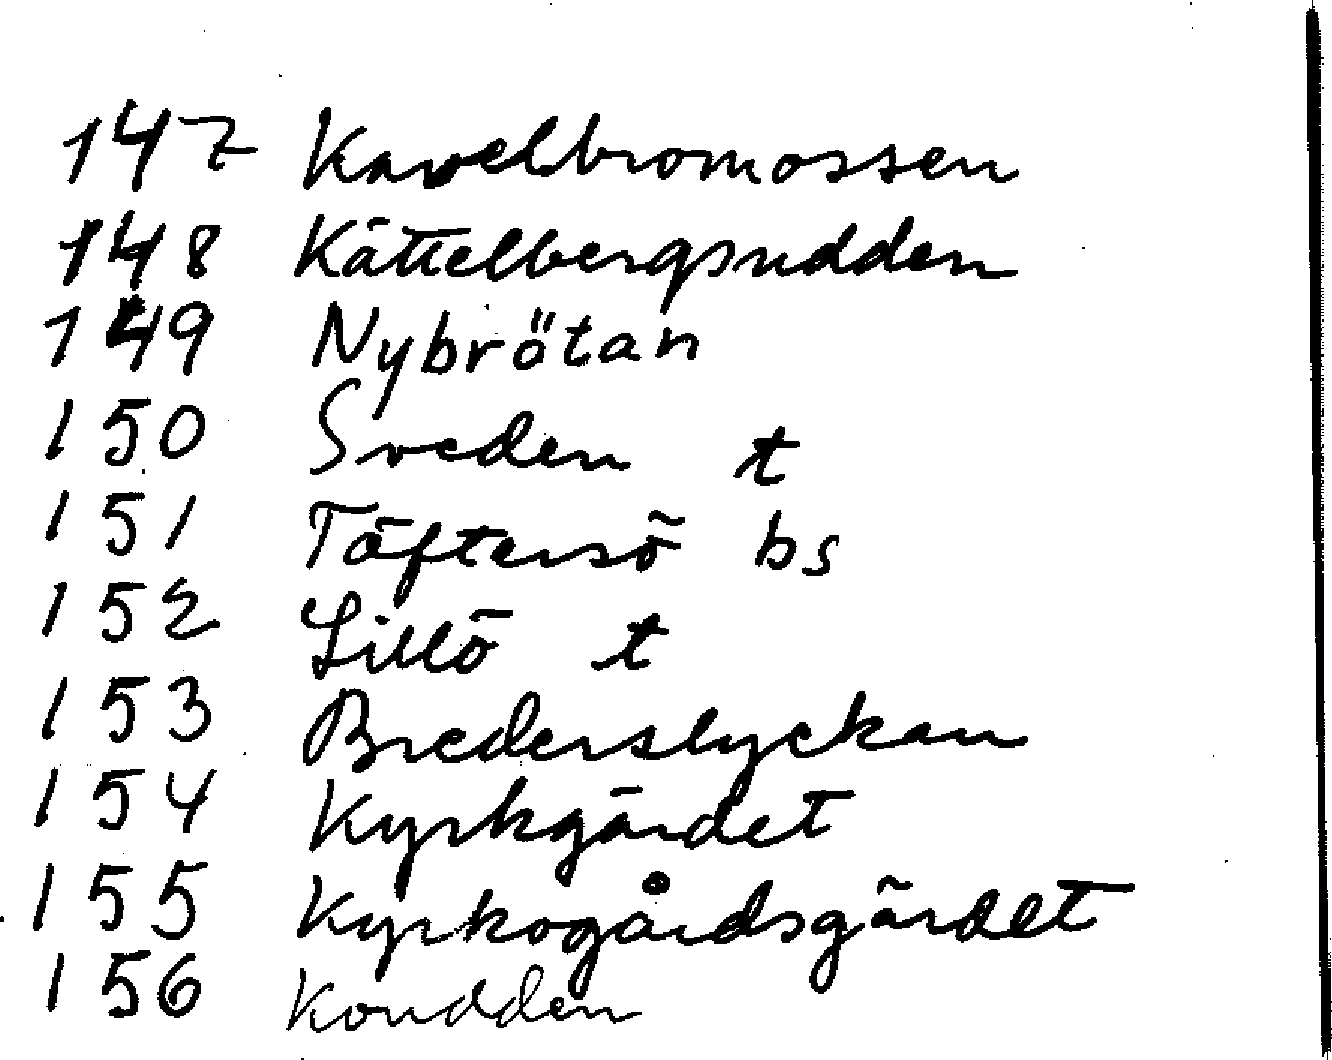 147 Kavelbromossen
148 Kättelbergsudden
149 Nybrötan
150 Sveden t
151 Täftersö bs
152 Lillö t
153 Brederslyckan
154 Kyrkgärdet
155 Kyrkogårdsgärdet
156 Koudden